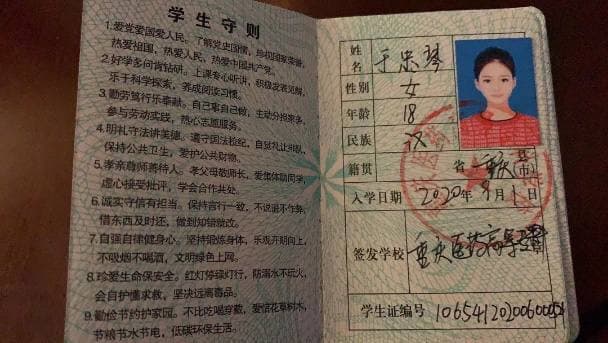 学生守则
1.爱党爱国爱人民。了解党史国情，珍视国家荣誉，
热爱祖国，热爱人民，热爱中国共产党。
2.好学多问肯钻研。上课专心听讲，积极发表见解，
乐于科学探索，养成阅读习惯。
3.勤劳笃行乐奉献。自己事自己做，主动分担家务，
参与劳动实践，热心志愿服务。
4.明礼守法讲美德。遵守国法校纪，自觉礼让排队，
保持公共卫生，爱护公共财物。
5.孝亲尊师善待人。孝父母敬师长，爱集体助同学，
虚心接受批评，学会合作共处。
6.诚实守信有担当。保持言行一致，不说谎不作弊，
借东西及时还，做到知错就改。
7.自强自律健身心。坚持锻炼身体，乐观开朗向上，
不吸烟不喝酒，文明绿色上网。
8.珍爱生命保安全。红灯停绿灯行，防溺水不玩火，
会自护懂求救，坚决远离毒品。
9.勤俭节约护家园。不比吃喝穿戴，爱惜花草树木，
节粮节水节电，低碳环保生活。
姓名 于忠琴
性别 女
年龄 18
民族 汉
籍贯 省 重庆 县(市)
入学日期 2020年9月1日
签发学校 重庆医药高等
学生证编号